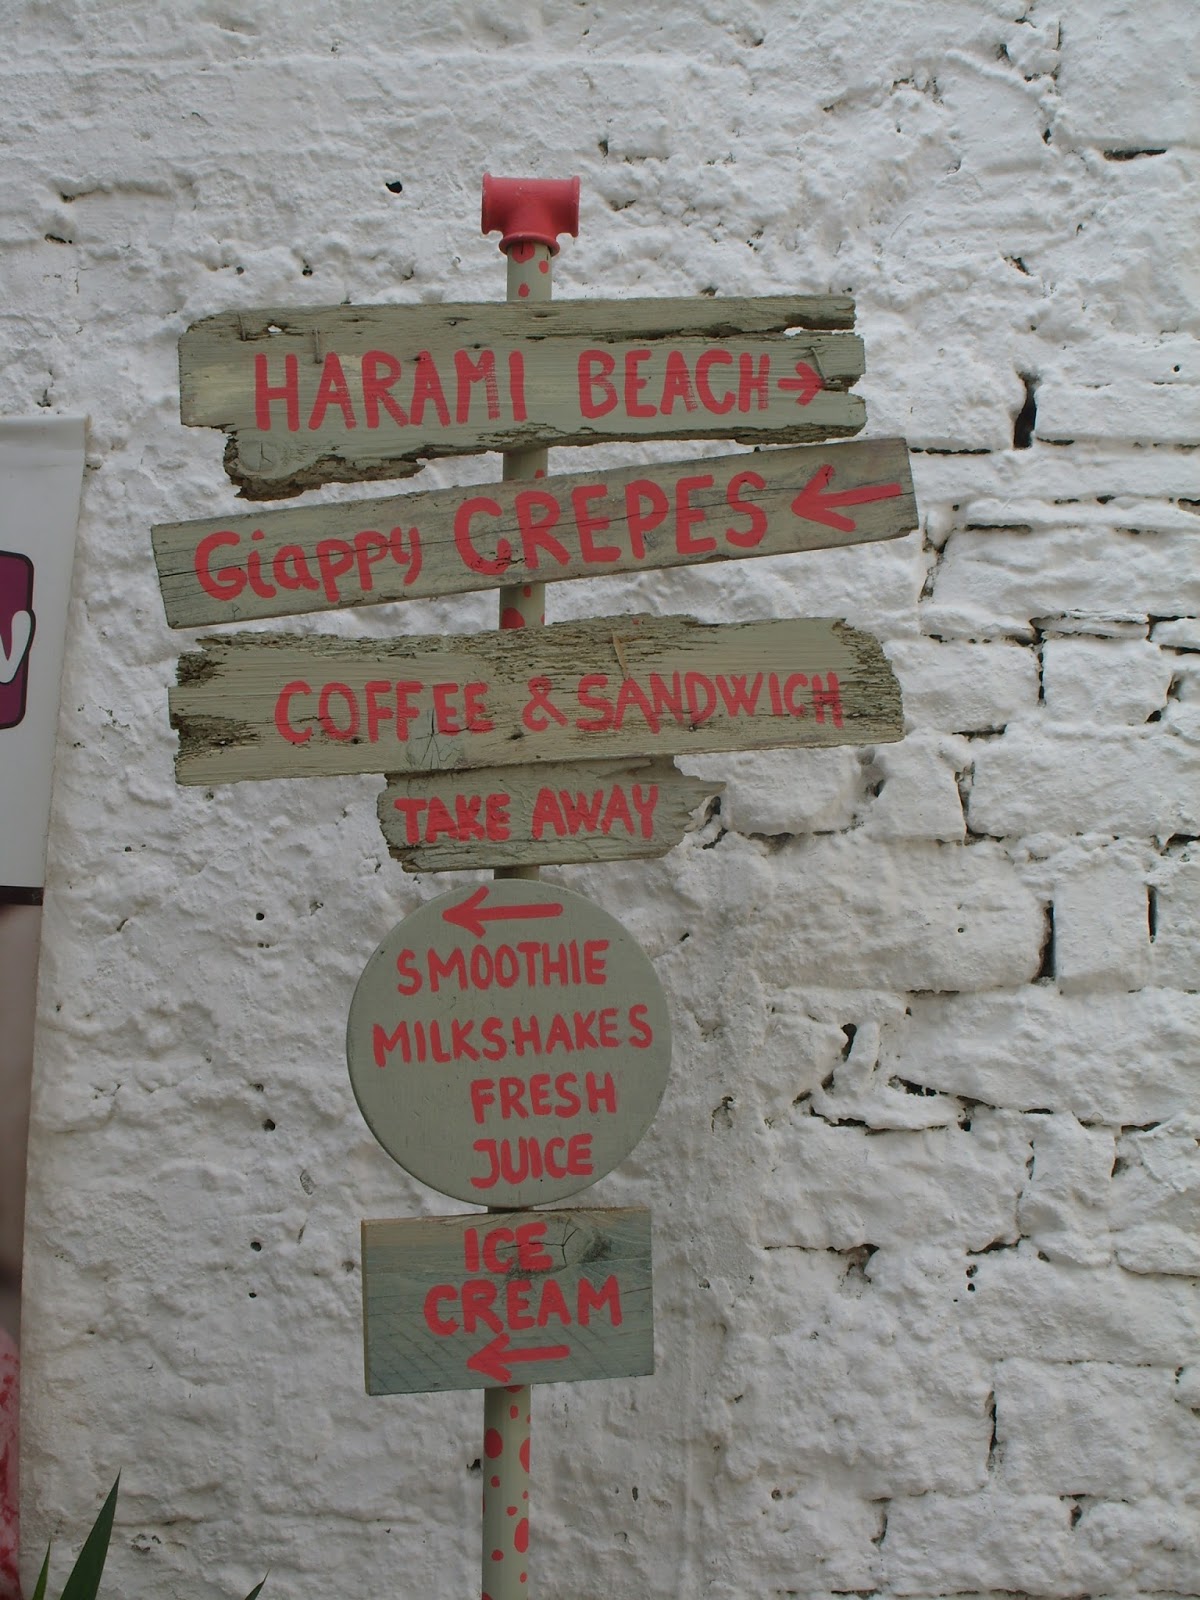 HARAMI BEACH →
Giappy CREPES ←
COFFEE & SANDWICH
TAKE AWAY
←
SMOOTHIE
MILKSHAKES
FRESH
JUICE
ICE
CREAM
←